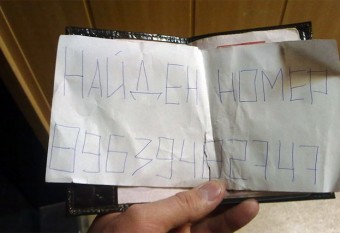 НАЙДЕН НОМЕР
89639492343